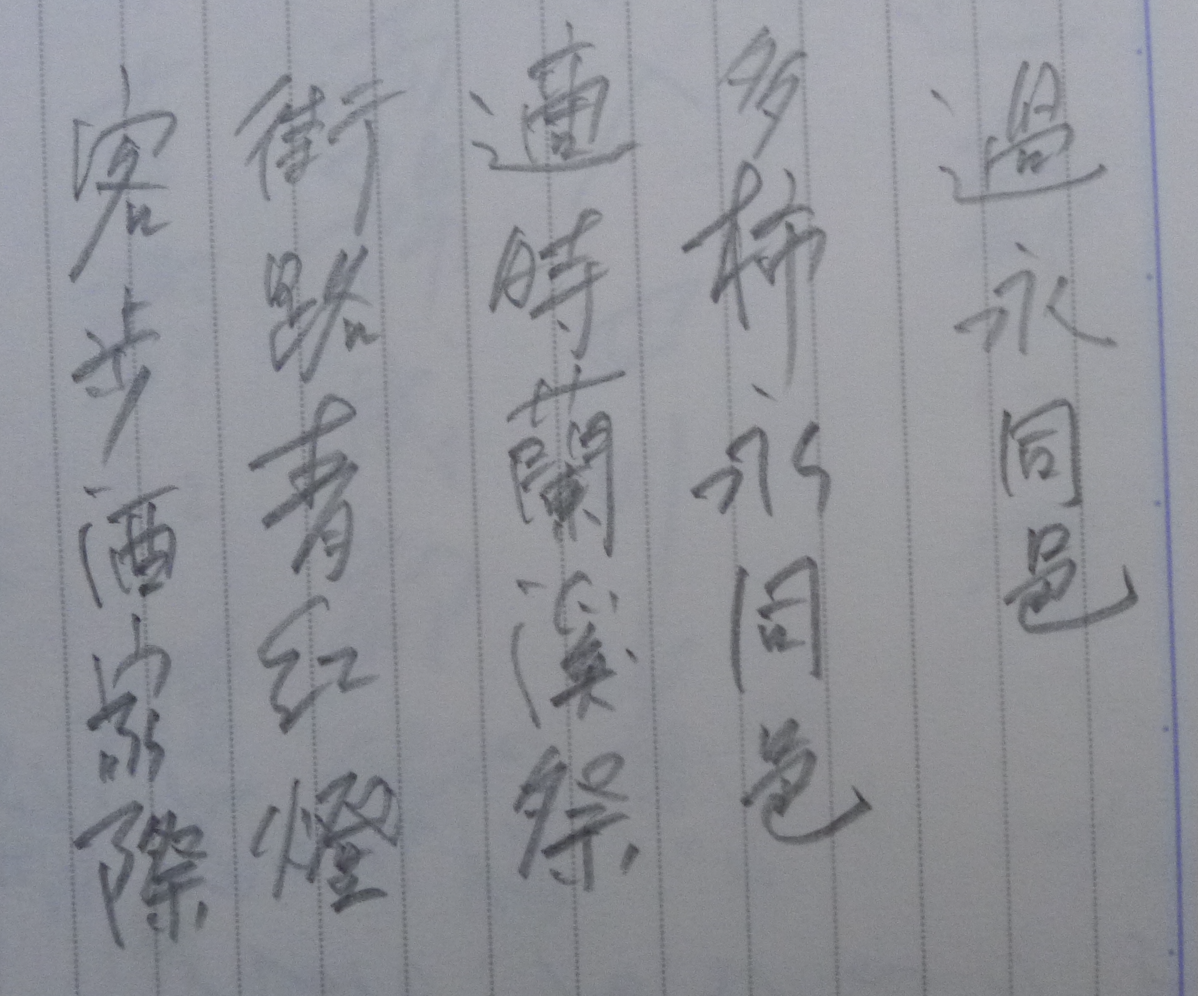 過永同邑
多柿永同邑
適時蘭溪祭
街路青紅燈
客步酒家際